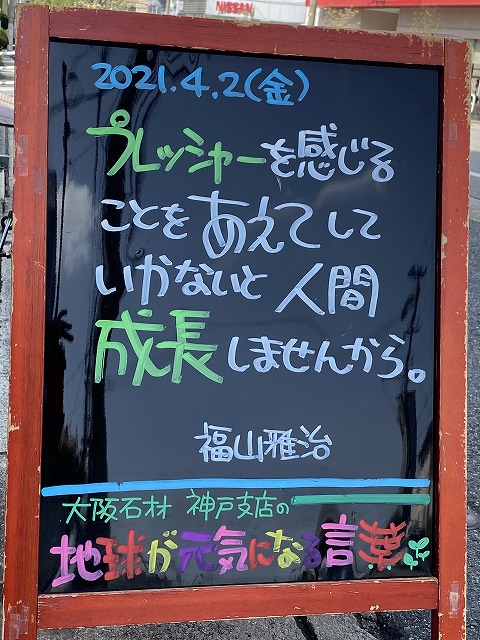 NISSAN
2021.4.2(金)
プレッシャーを感じる
ことをあえてして
いかないと 人間
成長しませんから。
福山雅治
大阪石材 神戸支店の
地球が元気になる言葉